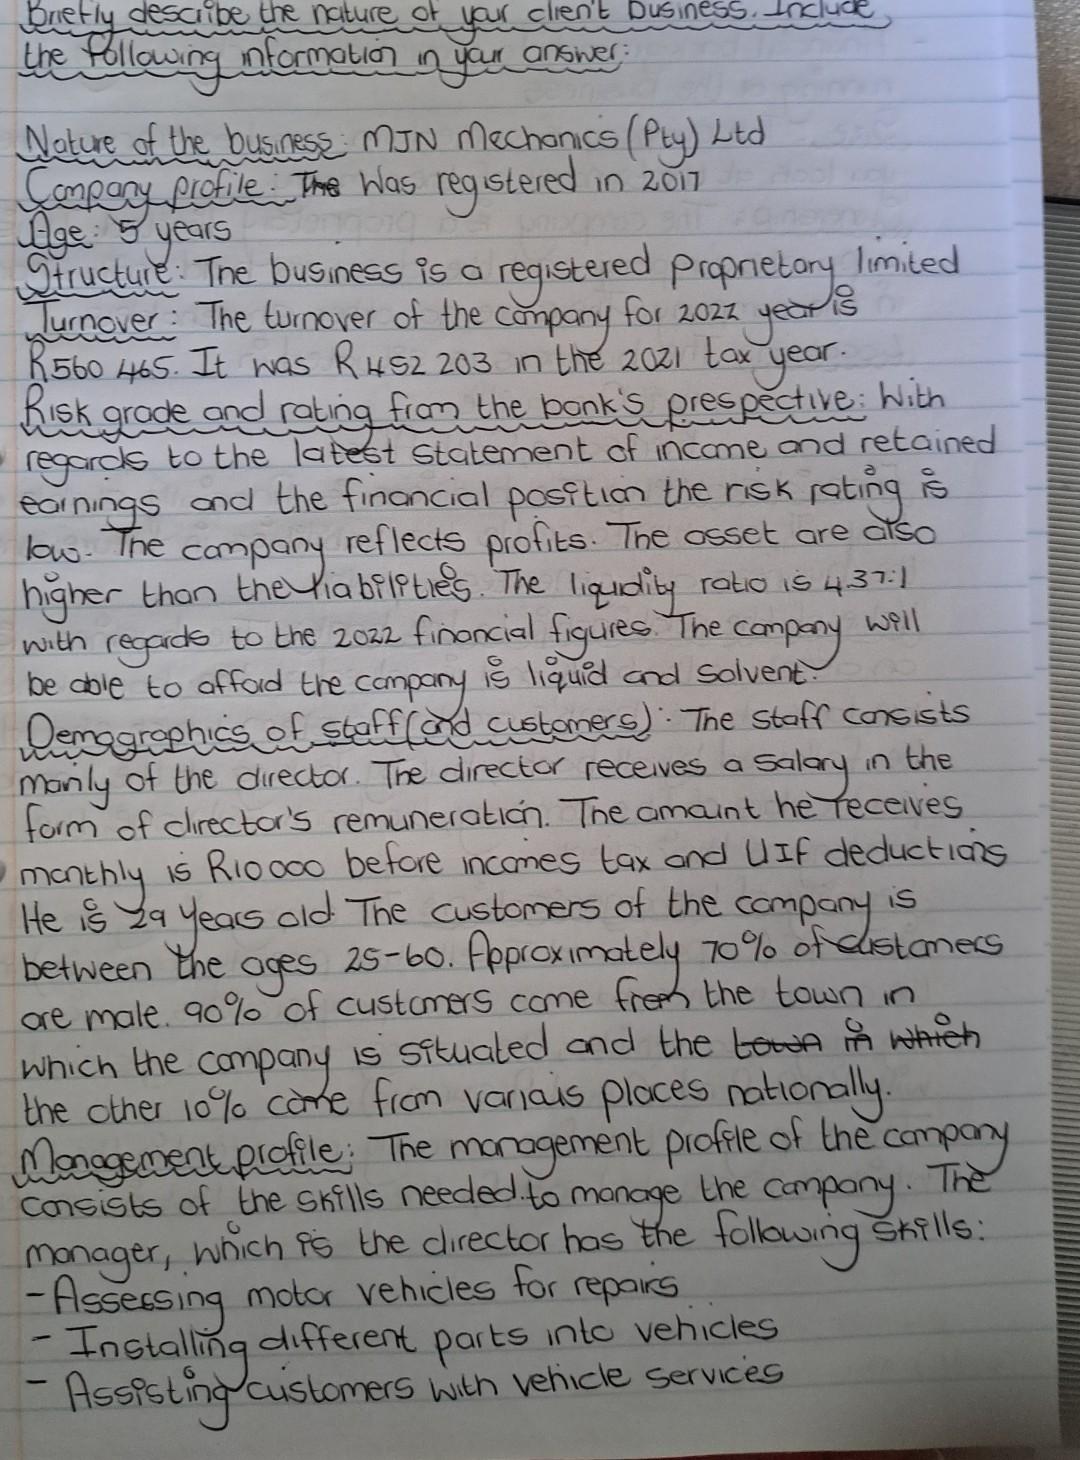 Briefly describe the nature of your client business. Include
the following information in your answer:
Nature of the business: MJN Mechanics (Pty) Ltd
Company profile: The Was registered in 2017
Age: 5 years
Structure: The business is a registered proprietary limited
Turnover: The turnover of the company for 2022 year is
R560 465. It was R452 203 in the 2021 tax year.
Risk grade and rating from the bank's prespective: With
regards to the latest statement of income and retained
earnings and the financial position the risk rating is
low. The company reflects profits. The asset are also
higher than the liabilities. The liquidity ratio is 4.37:1
with regards to the 2022 financial figures. The company will
be able to afford the company is liquid and solvent.
Demographics of staff (and customers): The staff consists
mainly of the director. The director receives a salary in the
form of director's remuneration. The amount he receives
monthly is R10 000 before incomes tax and UIF deductions
He is 29 years old The customers of the company is
between the ages 25-60. Approximately 70% of customers
are male. 90% of customers come from the town in
which the company is situated and the town in which
the other 10% come from various places nationally.
Management profile: The management profile of the company
consists of the skills needed to manage the company. The
manager, which is the director has the following skills:
- Assessing motor vehicles for repairs
- Installing different parts into vehicles
- Assisting customers with vehicle services